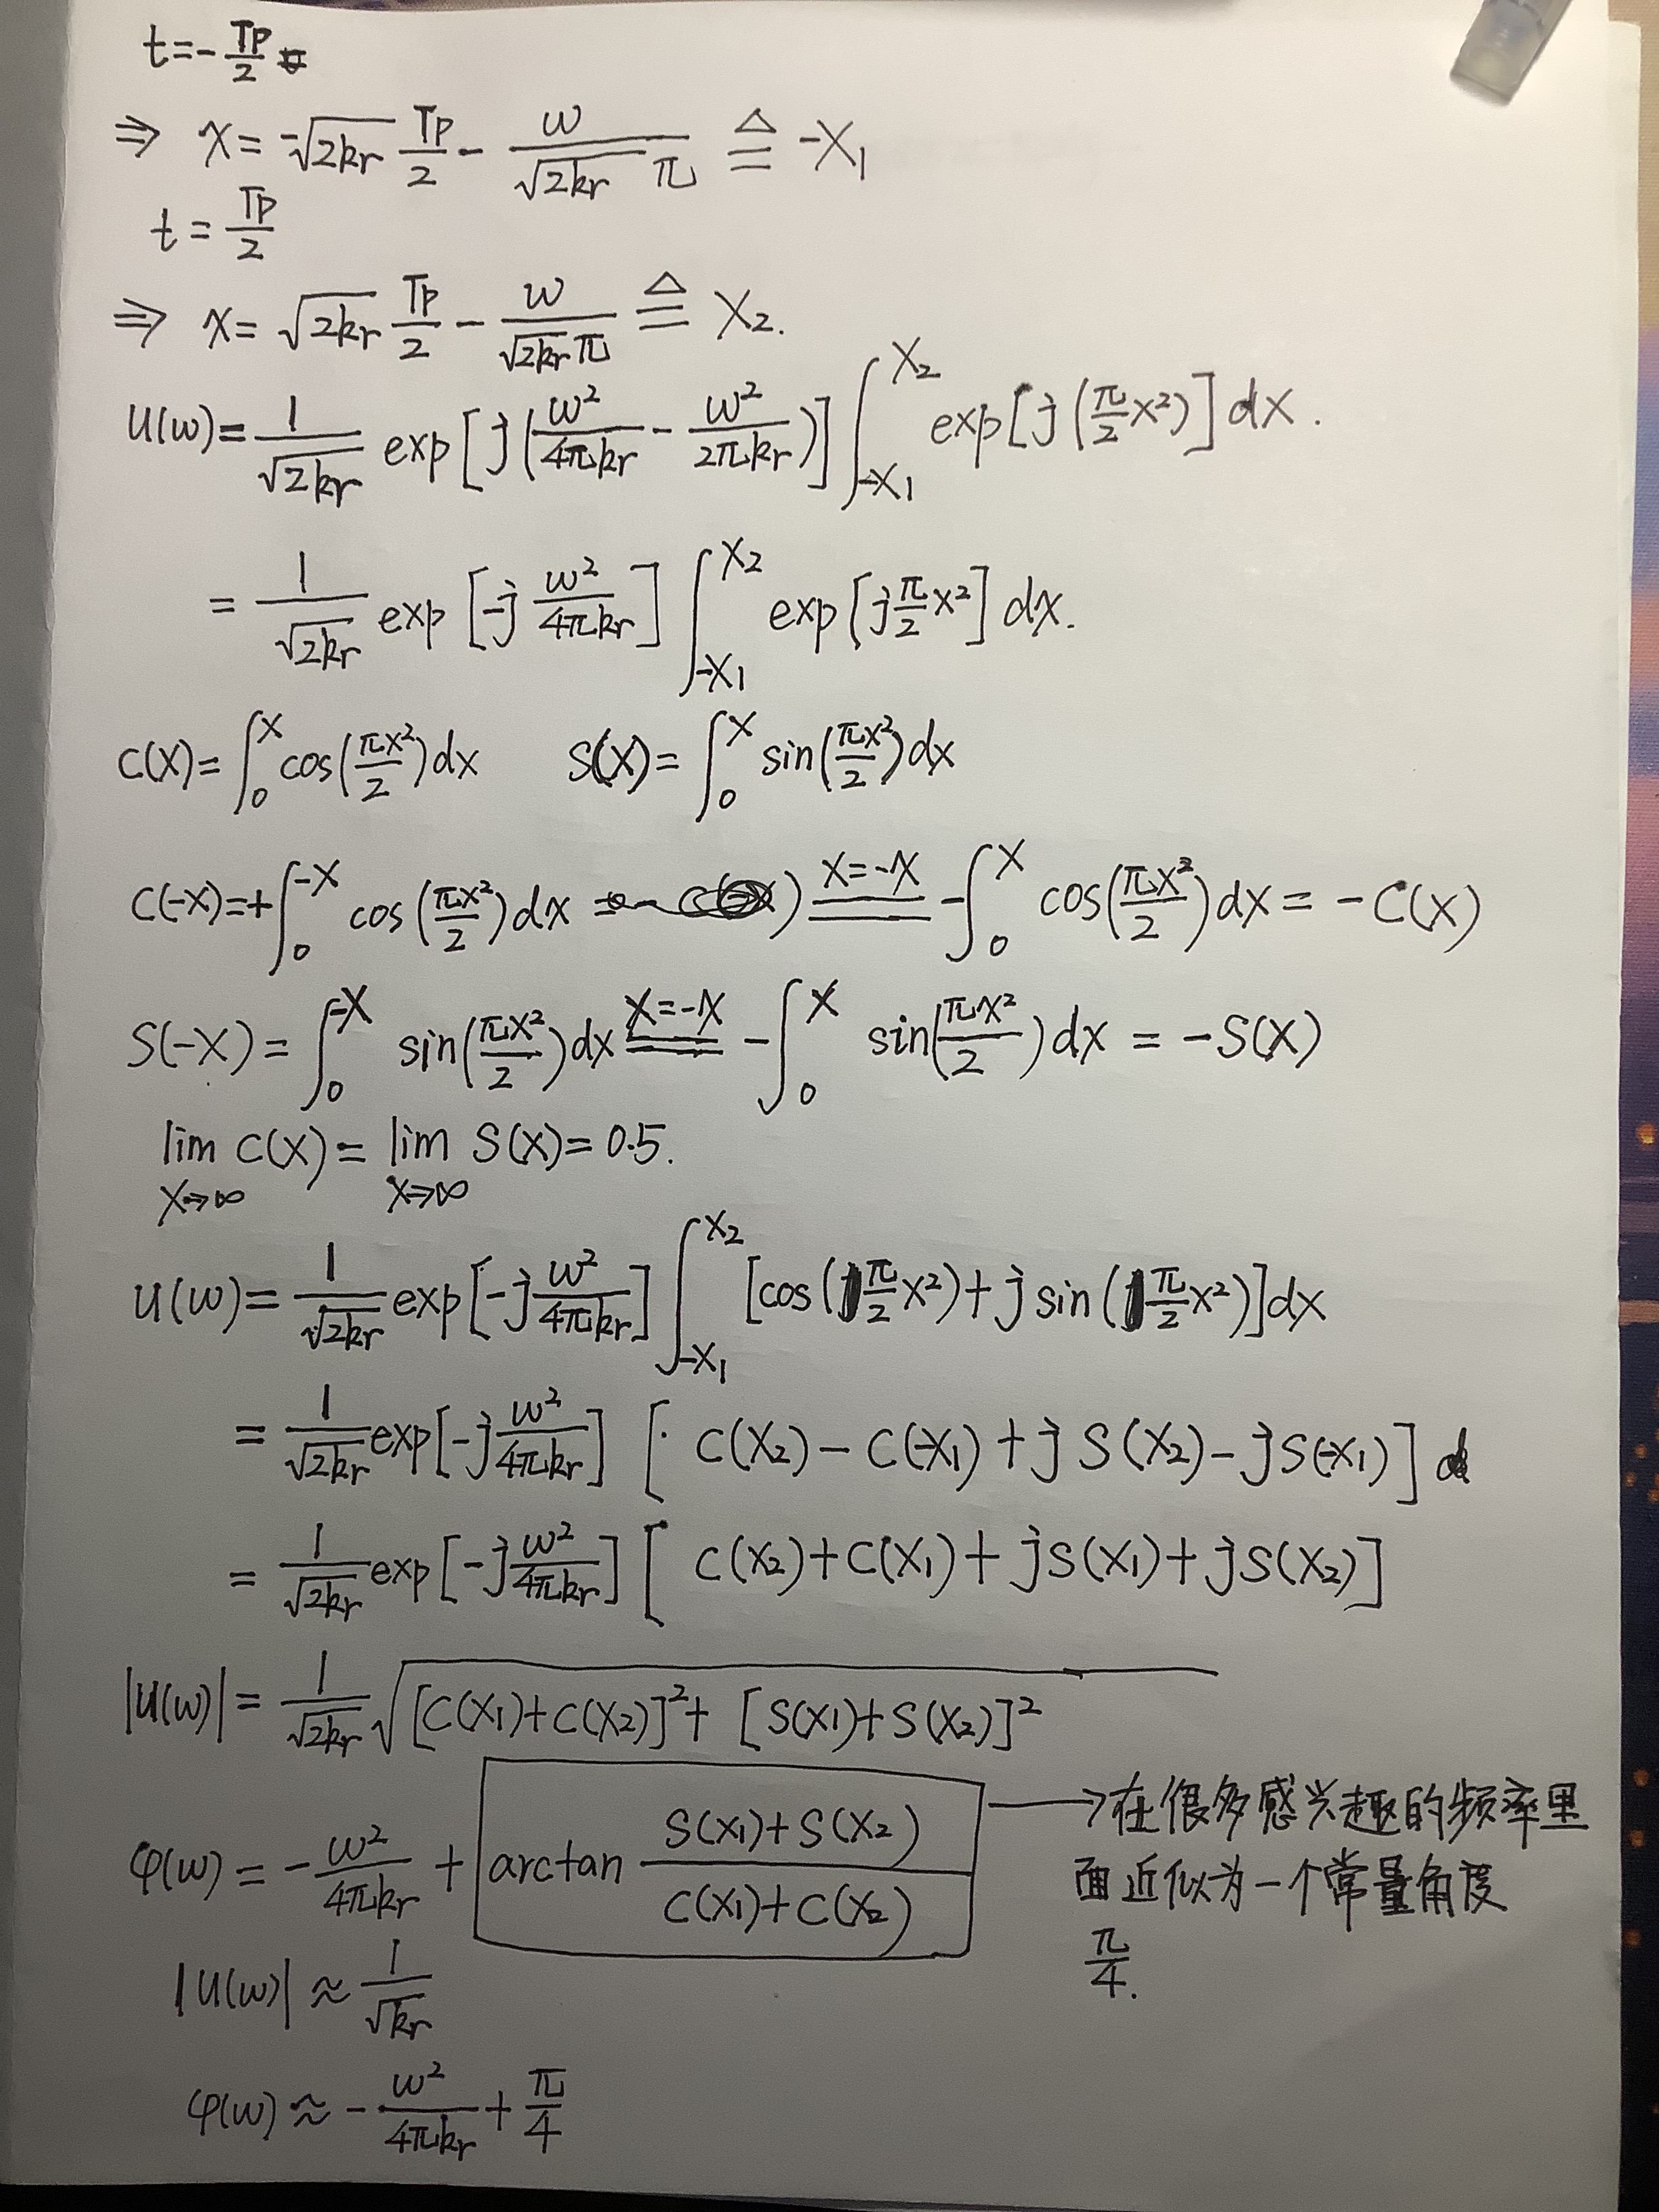 t=-Tp/2
⇒ x=-√(2kr) Tp/2 - ω/(√(2kr) π) ≜ -X₁
t=Tp/2
⇒ x=√(2kr) Tp/2 - ω/(√(2kr) π) ≜ X₂.
U(ω)=1/√(2kr) exp[j(ω²/4πkr - ω²/2πkr)] ∫_{-X₁}^{X₂} exp[j(π/2 x²)] dx.
=1/√(2kr) exp[-j ω²/4πkr] ∫_{-X₁}^{X₂} exp[j π/2 x²] dx.
C(X)=∫_0^X cos(πx²/2)dx S(X)=∫_0^X sin(πx²/2)dx
C(-X)=+∫_0^{-X} cos(πx²/2)dx =(x=-x)= -∫_0^X cos(πx²/2)dx = -C(X)
S(-X)=∫_0^{-X} sin(πx²/2)dx =(x=-x)= -∫_0^X sin(πx²/2)dx = -S(X)
lim_{X→∞} C(X)=lim_{X→∞} S(X)=0.5.
U(ω)=1/√(2kr) exp[-j ω²/4πkr] ∫_{-X₁}^{X₂} [cos(π/2 x²)+j sin(π/2 x²)]dx
=1/√(2kr) exp[-j ω²/4πkr] [C(X₂)-C(-X₁)+jS(X₂)-jS(-X₁)]
=1/√(2kr) exp[-j ω²/4πkr] [C(X₂)+C(X₁)+jS(X₁)+jS(X₂)]
|U(ω)|=1/√(2kr) √([C(X₁)+C(X₂)]²+[S(X₁)+S(X₂)]²)
φ(ω)=-ω²/4πkr + arctan (S(X₁)+S(X₂))/(C(X₁)+C(X₂)) →在很多感兴趣的频率里
面近似为一个常量角度
π/4.
|U(ω)|≈1/√kr
φ(ω)≈-ω²/4πkr+π/4